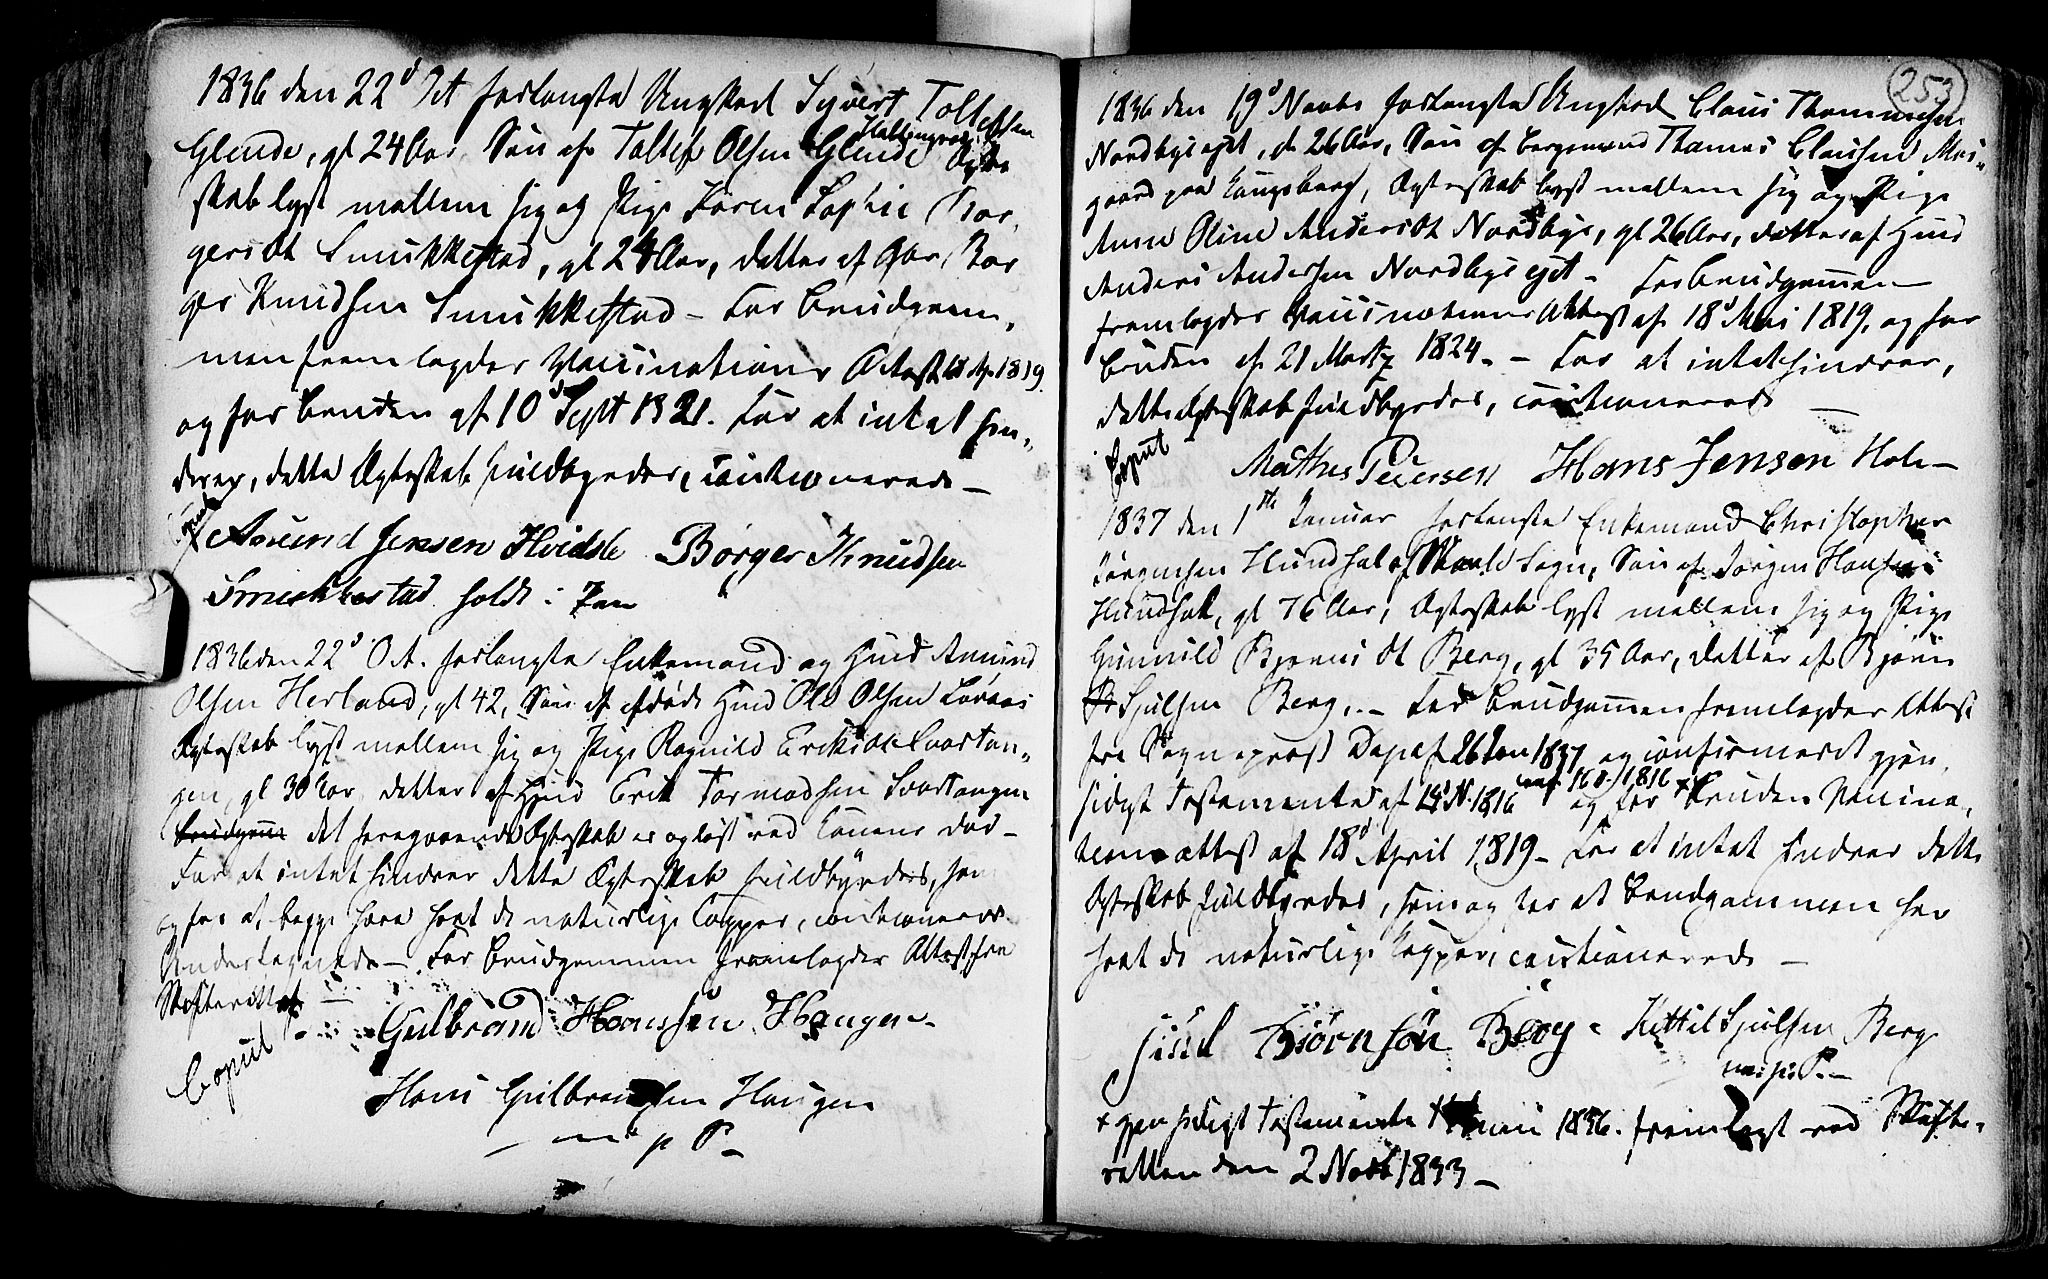 1836 den 22d Oct forlangte Ungkarl Syvert Tollefsen
Glende, gl 24 Aar, Søn af Tollef Olsen Glende Hallingrud Ægte
skab lyst mellem sig og Pige Karen Sophie Bør,
gersdt Smukkestad, gl 24 Aar, datter af Gbr. Bør
ger Knudsen Smukkestad – For Brudgom,
men fremlagdes Vaccinations Attest 18 Ap 1819
og for Bruden af 10d Sept 1821. For at intet hin,,
drer, dette Ægteskab fuldbyrdes, cautionerede –
Copul
Amund Jensen Hvidste Børger Knudsen
Smukkestad holdt i Pen
1836 den 22d Oct. forlangte Enkemand og Huusmd Amund
Olsen Herland, gl 42, Søn af afdøde Huusmd Ole Olsen
Ægteskab lyst mellem sig og Pige Ragnild Eriksdt Svartan,,
gen, gl 30 Aar, datter af Huusmd Erik Tormodsen Svartangen
det foregaaende Ægteskab er opløst ved Konens Død –
For at intet hindrer dette Ægteskab fuldbyrdes, som
og for at begge have havt de naturlige Copper, cautionerede
Undertegnede – For Brudgommen fremlagdes Attest fra
Skifteretten
Copul Gulbrand Hansen Haugen
Hans Gulbrandsen Haugen
m p P –
253
1836 den 19d Novbr forlangte Ungkarl Claus Thommesen
Nordbyeejet, gl 26 Aar, Søn af Bergmand Thomas Clausen
gaard paa Kongsberg, Ægteskab lyst mellem sig og Pige
Anne Oline Andersdt Nordbye, gl 26 Aar, datter af Huusmd
Anders Andersen Nordbyeejet – For Brudgommen
fremlagdes Vaccinations Attest af 18d Mai 1819, og for
Bruden af 21 Martz 1824. – For at intet hindrer,
dette Ægteskab fuldbyrdes, cautionerede –
Copul
Mathes Pedersen Hans Jensen Holm
1837 den 1ste Januar forlangte Enkemand Christopher
Jørgensen Hundsal af Sogn, Søn af Jørgen Hansen
Hundsal, gl 76 Aar, Ægteskab lyst mellem sig og Pige
Gunnild Bjørnsdt Berg, gl 35 Aar, datter af Bjørn
Sjulsen Berg. – For Brudgommen fremlagdes Attest
fra Sogneprest af 26 Jan 1837 og confirmeret gjen,
sidigt Testamente af 1816 og for Bruden Vaccina,
tions attest af 18d April 1819 – For at intet hindrer dette
Ægteskab fuldbyrdes, som og for at Brudgommen har
havt de naturlige Kopper, cautionerede –
Bjørnsøn Berg – Kittil Sjulsen Berg
m p P. –
+ gjensidigt Testamente 1836. fremlagt ved Skifte,
retten den 2 Novb 1833 –